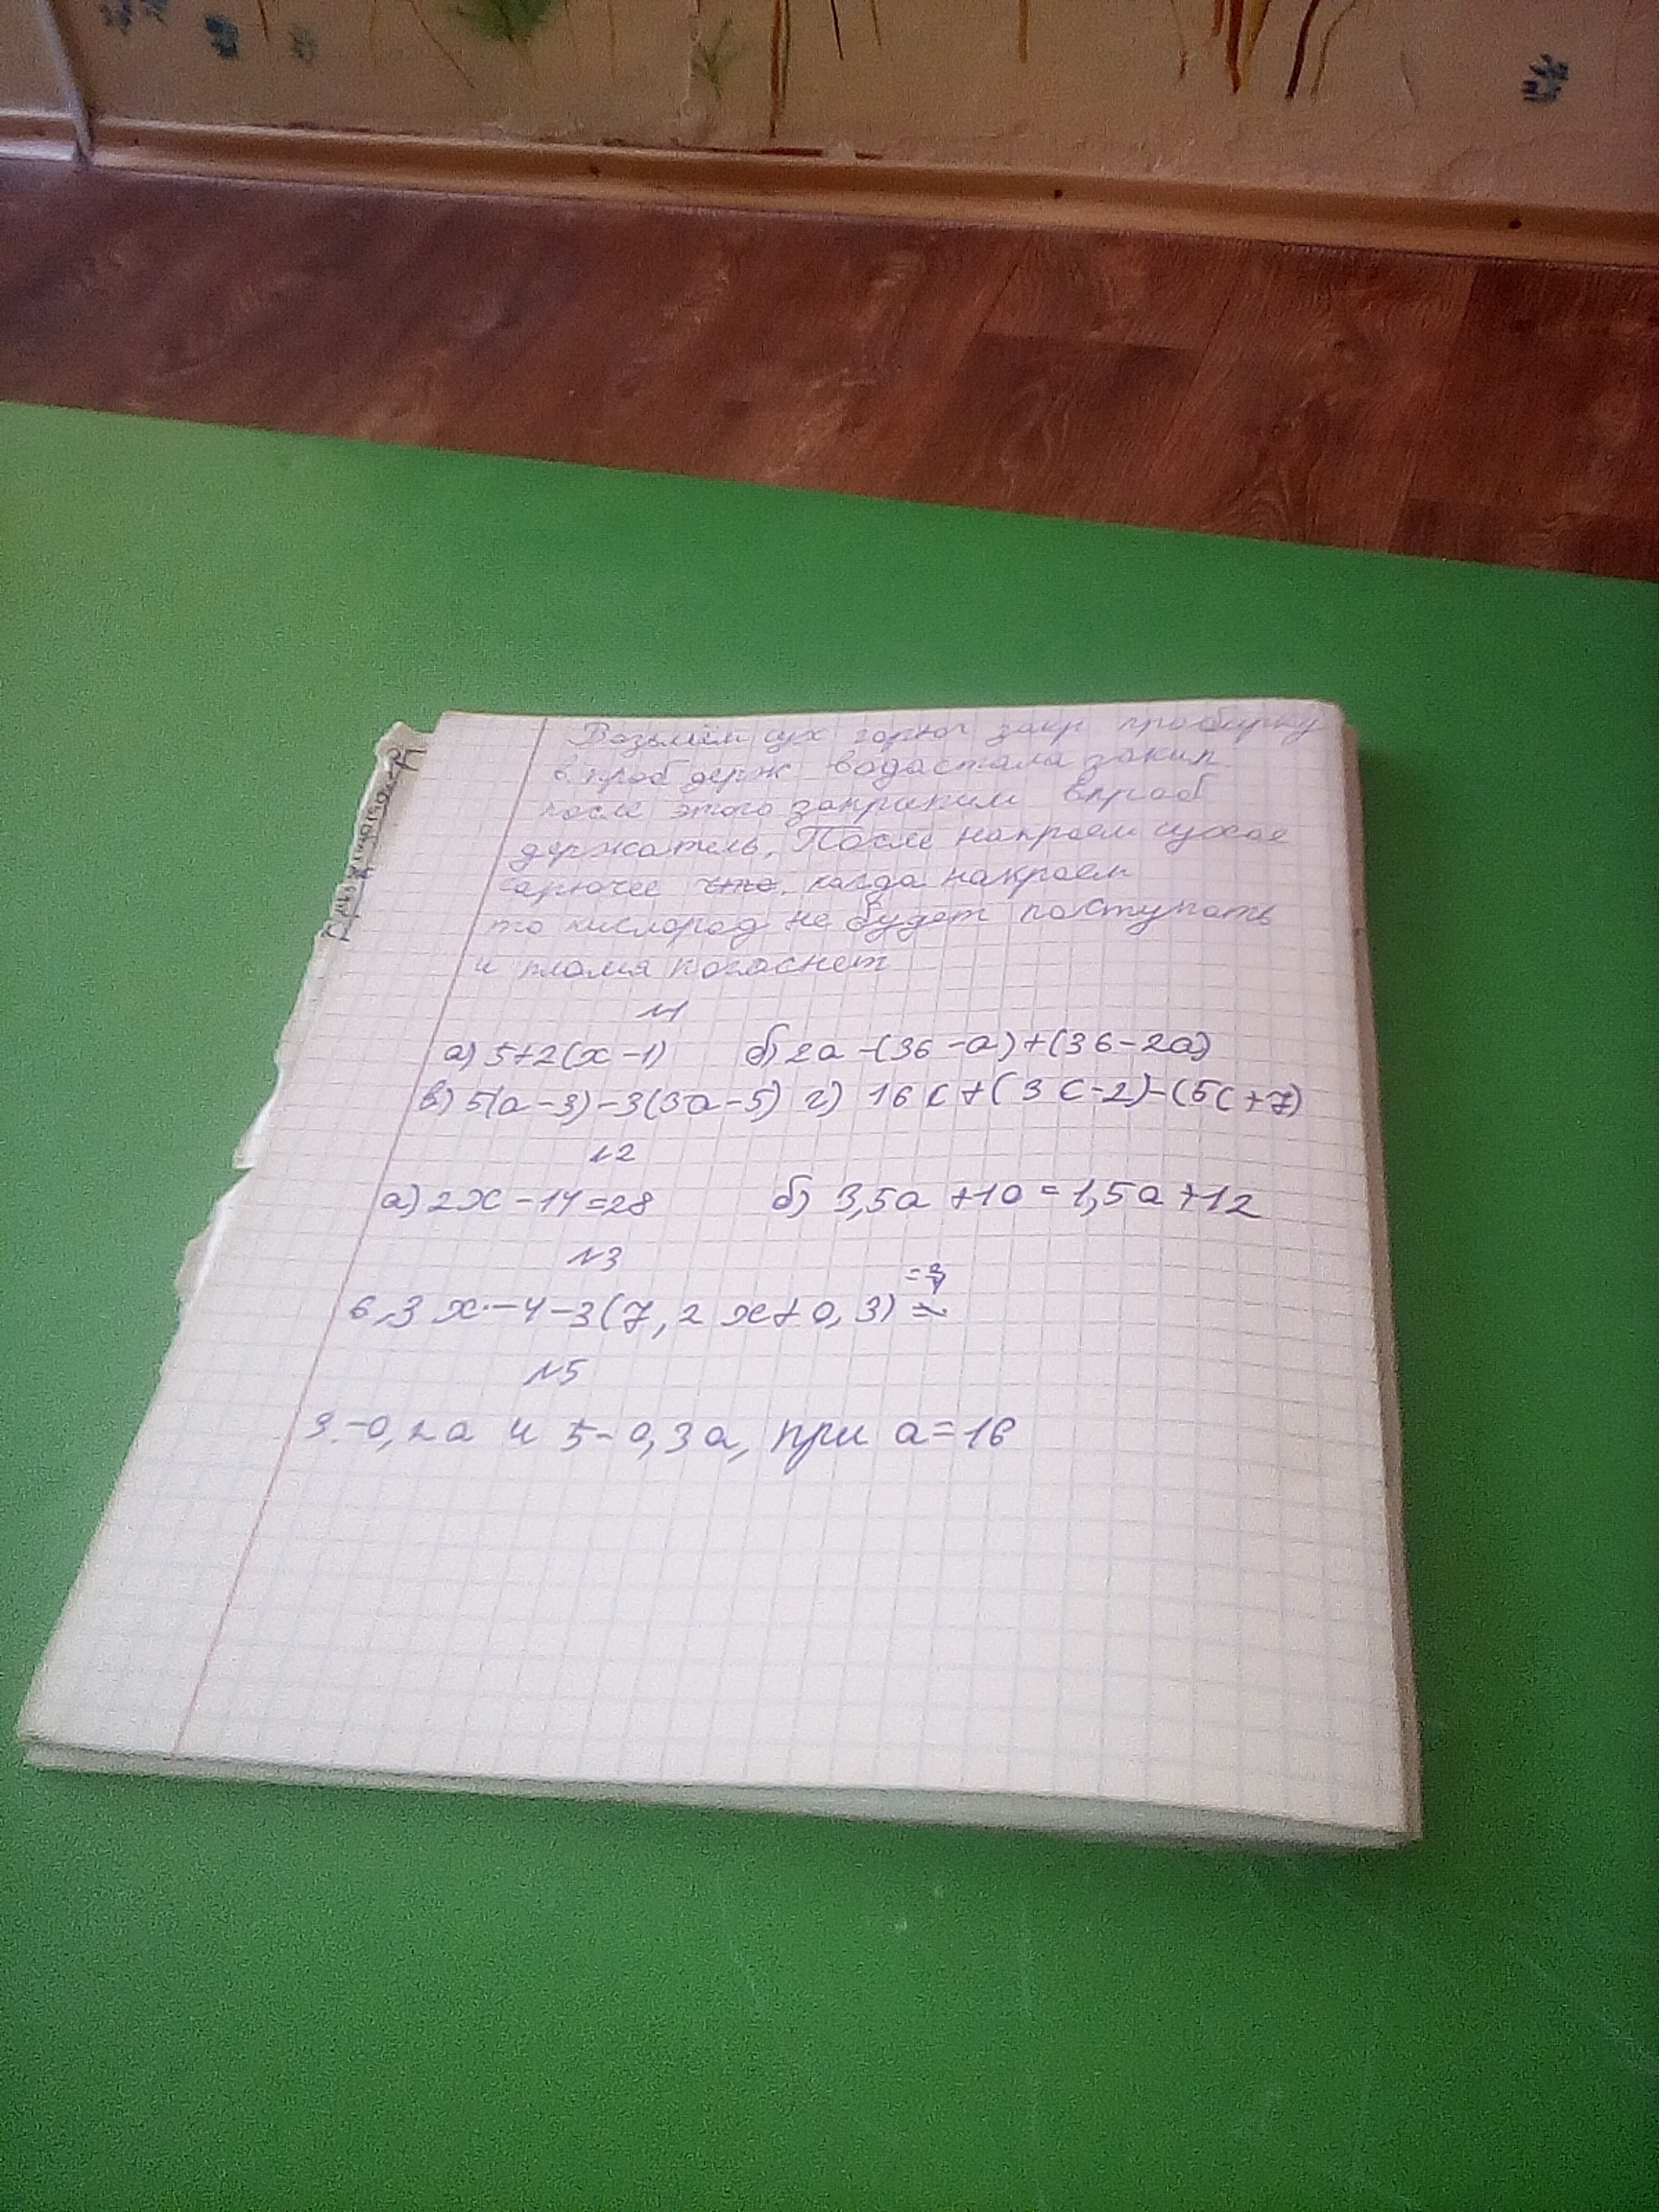 Возьмём сух горюч закр пробирку
в проб держ водастала закип.
после этого закрепим впроб
держатель. После накроем сухое
горючее что, когда накроем
то кислород не будет поступать
и пламя погаснет
№1
а) 5+2(x-1) б) 2a-(3б-a)+(3б-2a)
в) 5(a-3)-3(3a-5) г) 16c+(3c-2)-(5c+7)
№2
а) 2x-14=28 б) 3,5a+10=1,5a+12
№3
6,3x-4-3(7,2x+0,3)
№5
3-0,2a и 5-0,3a, при a=16